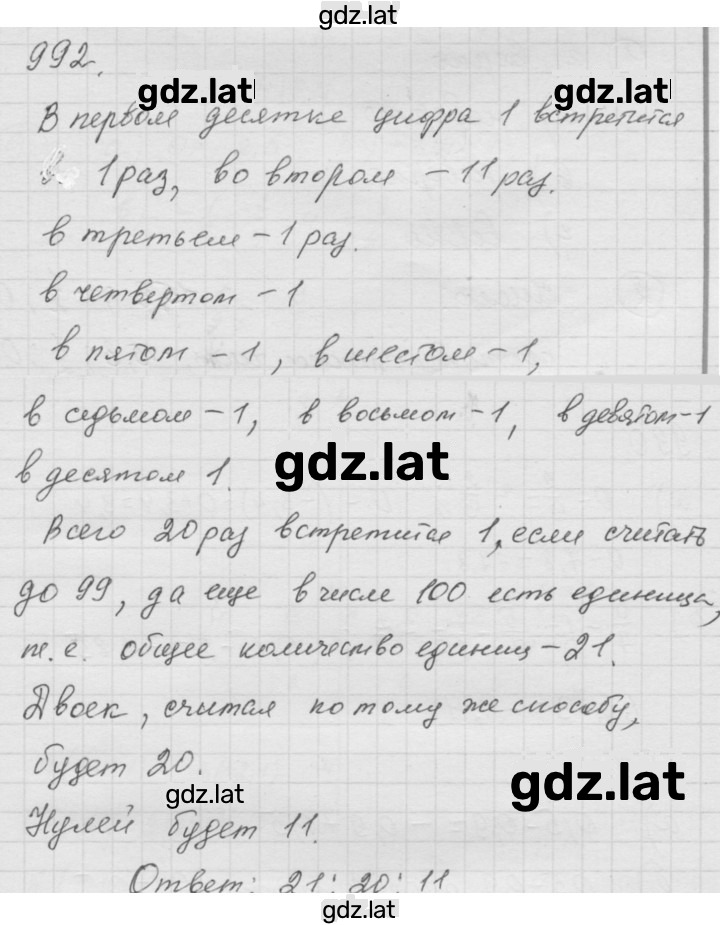 gdz.lat
992.
gdz.lat gdz.lat
В первом десятке цифра 1 встретится
в 1 раз, во втором – 11 раз.
в третьем – 1 раз.
в четвертом – 1
в пятом – 1, в шестом – 1,
в седьмом – 1, в восьмом – 1, в девятом – 1
в десятом 1.
gdz.lat
Всего 20 раз встретится 1, если считать
до 99, да еще в числе 100 есть единица,
т. е. общее количество единиц – 21.
Двоек, считая по тому же способу,
будет 20.
gdz.lat
gdz.lat
Нулей будет 11.
Ответ: 21; 20; 11
gdz.lat